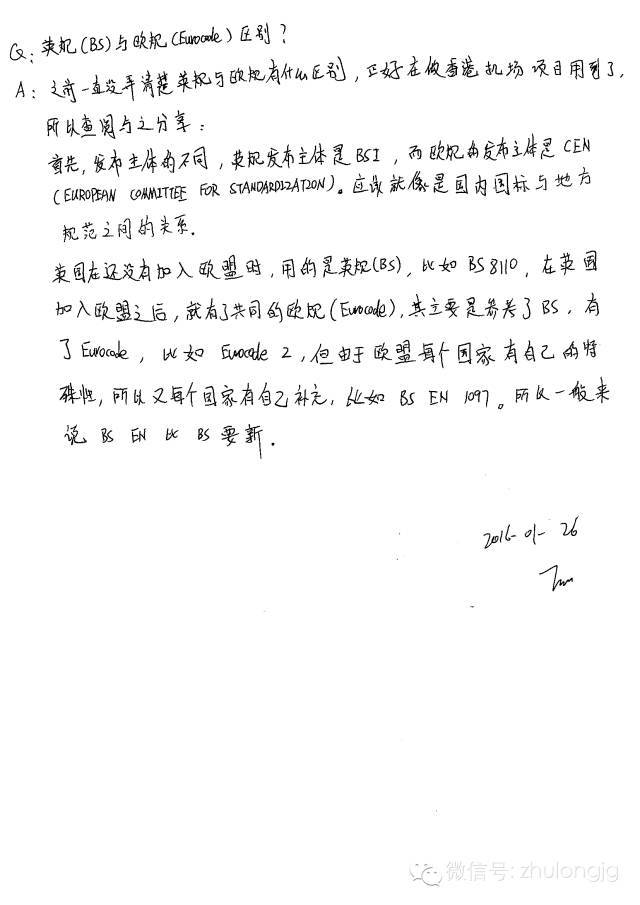 Q: 英规(BS)与欧规(Eurocode)区别?
A: 之前一直没弄清楚英规与欧规有什么区别,正好在做香港机场项目用到了,
所以查阅与之分享:
首先,发布主体的不同,英规发布主体是BSI,而欧规的发布主体是CEN
(EUROPEAN COMMITTEE FOR STANDARDIZATION)。应该就像是国内国标与地方
规范之间的关系.
英国在还没有加入欧盟时,用的是英规(BS),比如BS8110,在英国
加入欧盟之后,就有了共同的欧规(Eurocode),其主要是参考了BS.有
了Eurocode,比如Eurocode 2,但由于欧盟每个国家有自己的特
殊性,所以又每个国家有自己补充,比如BS EN 1097。所以一般来
说 BS EN 比 BS要新.
2016-01-26
微信号: zhulongjg